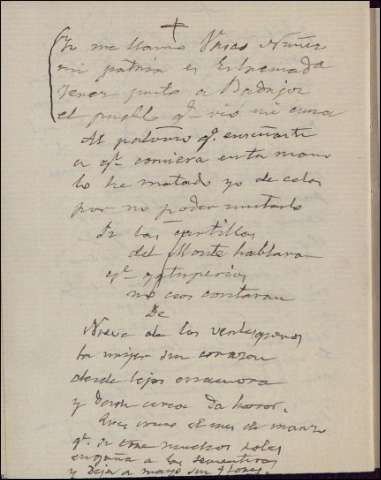 Yo me llamo Urias Nuñez
mi patria es Estremada
Jerez junto a Badajoz
el pueblo qᵉ vió mi cuna
Al palomo qᵉ enseñaste
a qᵉ comiera en tu mano
lo he matado yo de celos
por no poder imitarlo
Si las
del Monte hablaran
qᵉ
no nos contaran
De
Nieve de los ventisqueros
la mujer sin corazon
desde lejos enamora
y desde cerca da horror.
eres como el mes de marzo
qᵉ de muchos soles
engaña a las sementeras
y deja a mayo sin flores.